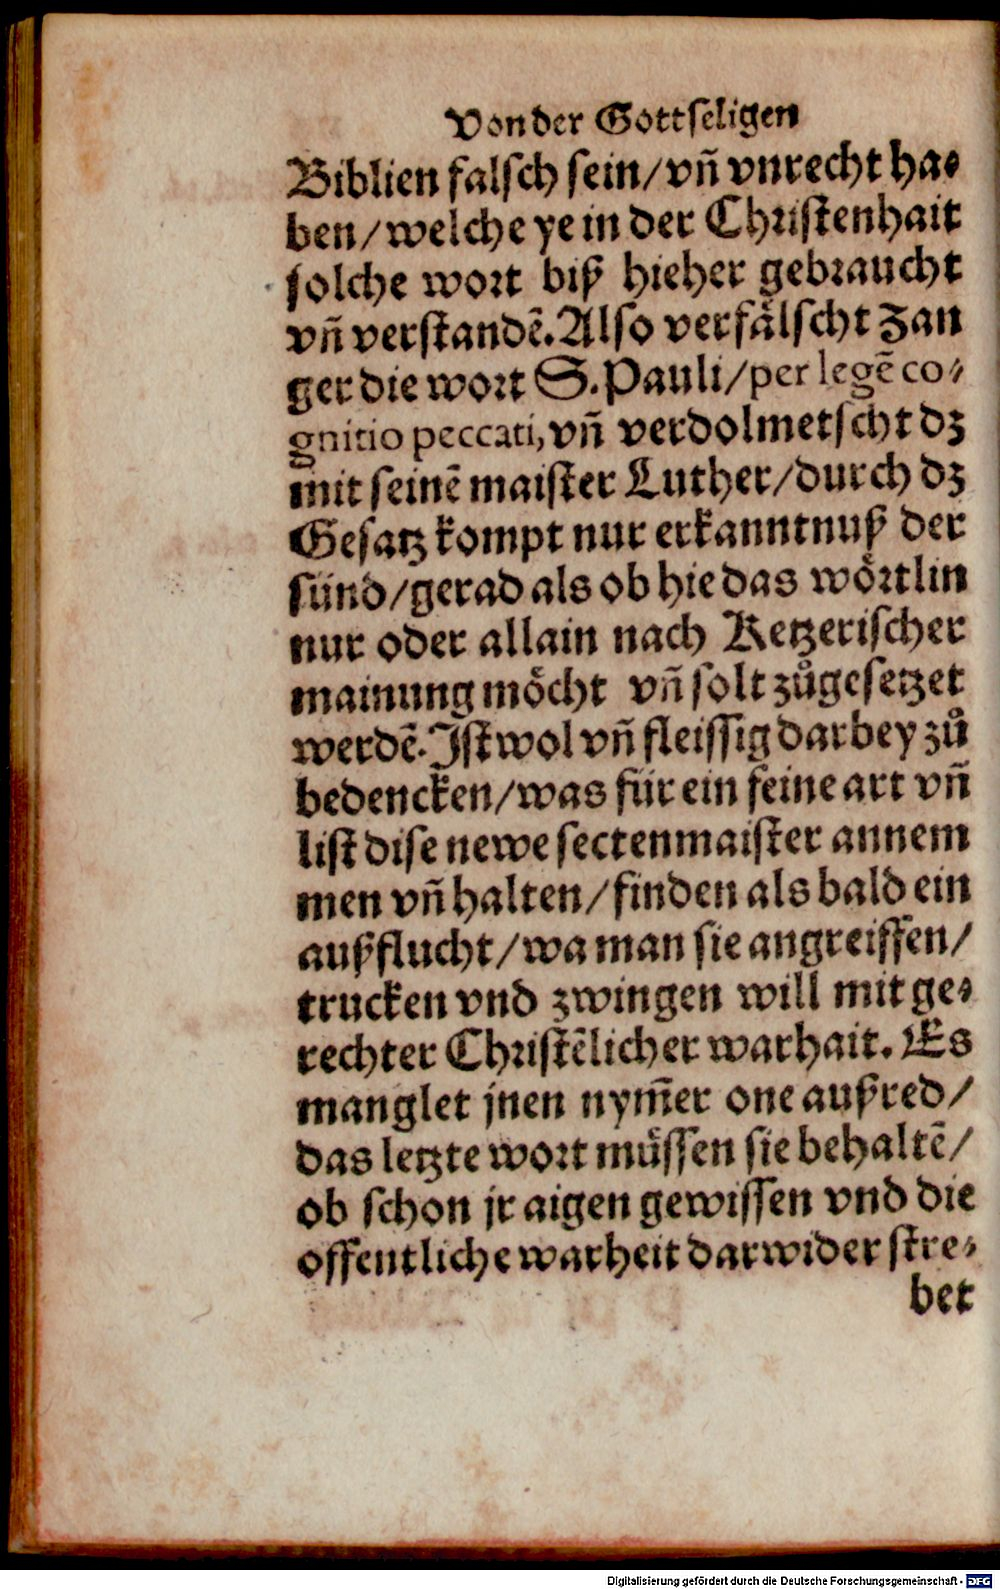 Von der Gottseligen
Biblien falsch sein/vñ vnrecht ha⸗
ben/welche ye in der Christenhait
solche wort biß hieher gebraucht
vñ verstandẽ. Also verfälscht Zan
ger die wort S. Pauli/per legẽ co⸗
gnitio peccati, vñ verdolmetscht dz
mit seinẽ maister Luther/durch dz
Gesatz kompt nur erkanntnuß der
sünd/gerad als ob hie das wörtlin
nur oder allain nach Ketzerischer
mainung möcht vñ solt zůgesetzet
werdẽ. Ist wol vñ fleissig darbey zů
bedencken/was für ein feine art vñ
list dise newe sectenmaister annem
men vñ halten/finden als bald ein
außflucht/wa man sie angreiffen/
trucken vnd zwingen will mit ge⸗
rechter Christẽlicher warhait. Es
manglet jnen nym̃er one außred/
das letzte wort müssen sie behaltẽ/
ob schon jr aigen gewissen vnd die
offentliche warheit darwider stre⸗
bet
Digitalisierung gefördert durch die Deutsche Forschungsgemeinschaft - DFG